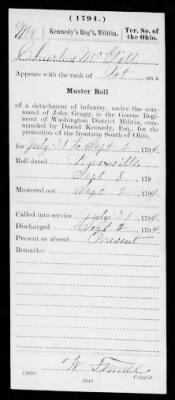 (1794.)
Mc | Kennedy's Reg't, Militia. | Ter. So. of the Ohio.
Charles McGill
Appears with the rank of Pvt on a
Muster Roll
of a detachment of infantry, under the command
of John Gragg, in the Greene Regiment
of Washington District Militia, commanded
by Daniel Kennedy, Esq., for the
protection of the Territory South of Ohio,
for July 31 to Sept 2, 1794.
Roll dated
Sept 3, 179
Mustered out Sept 2, 1794
Called into service July 31, 1794
Discharged Sept 2, 1794.
Present or absent Present
Remarks:
Copyist.